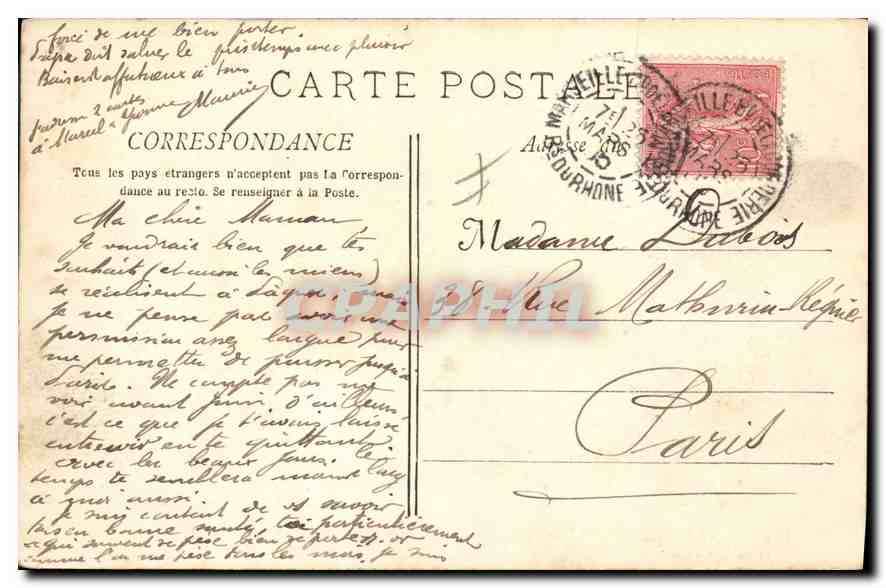 forcé de me bien porter
Papa doit saluer le printemps avec plaisir
Baisers affectueux à tous
2 cartes
à Marcel & Yvonne Maurice
CARTE POSTALE
CORRESPONDANCE
Adresse
Tous les pays étrangers n'acceptent pas la Correspon-
dance au recto. Se renseigner à la Poste.
MARSEILLE
7E 25
MARS
05
BES DU RHONE
Ma chère Maman
Je voudrais bien que tes
souhaits (et aussi les miens)
se réalisent à Pâques, mais
je ne pense pas avoir une
permission assez longue pour
me permettre de pousser jusqu'à
Paris. Ne compte pas me
voir avant Juin d'ailleurs
c'est ce que je t'avais laissé
entrevoir en te quittant
avec les beaux jours. le
temps te semblera moins long
à moi aussi.
Je suis content de vs savoir
tous en bonne santé, toi particulièrement
et qui souvent se pèse bien se porte. or
comme l'on me pèse tous les mois, je suis
Madame Dubois
38 Rue Mathurin-Régnier
Paris
CPAPHIL